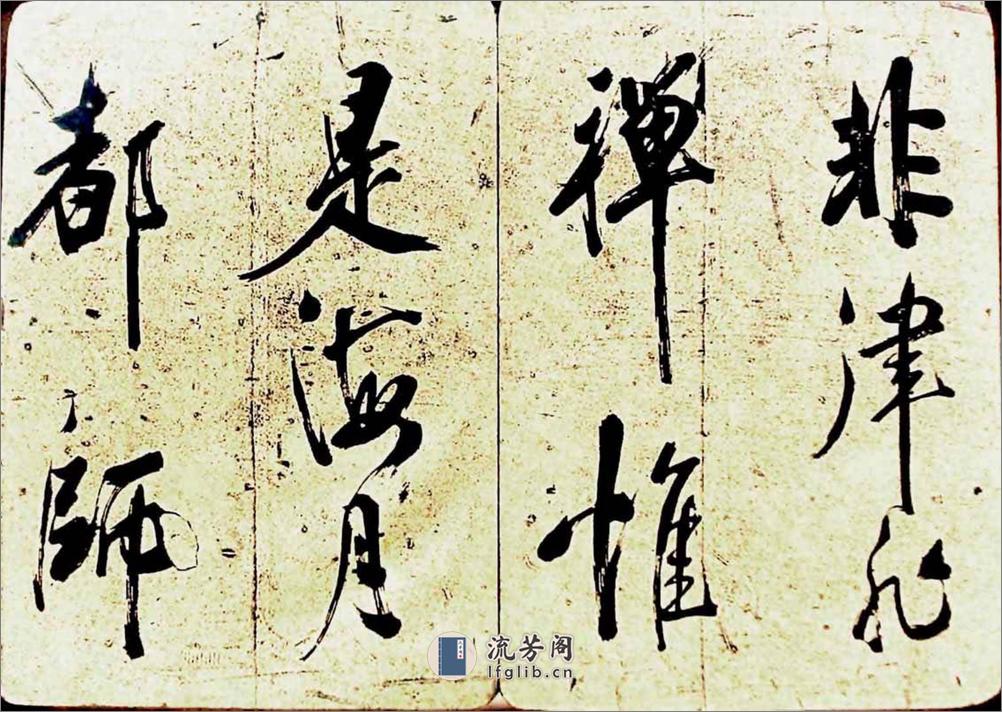 非津非
禅惟
是海月
都師
流芳阁
lfglib.cn